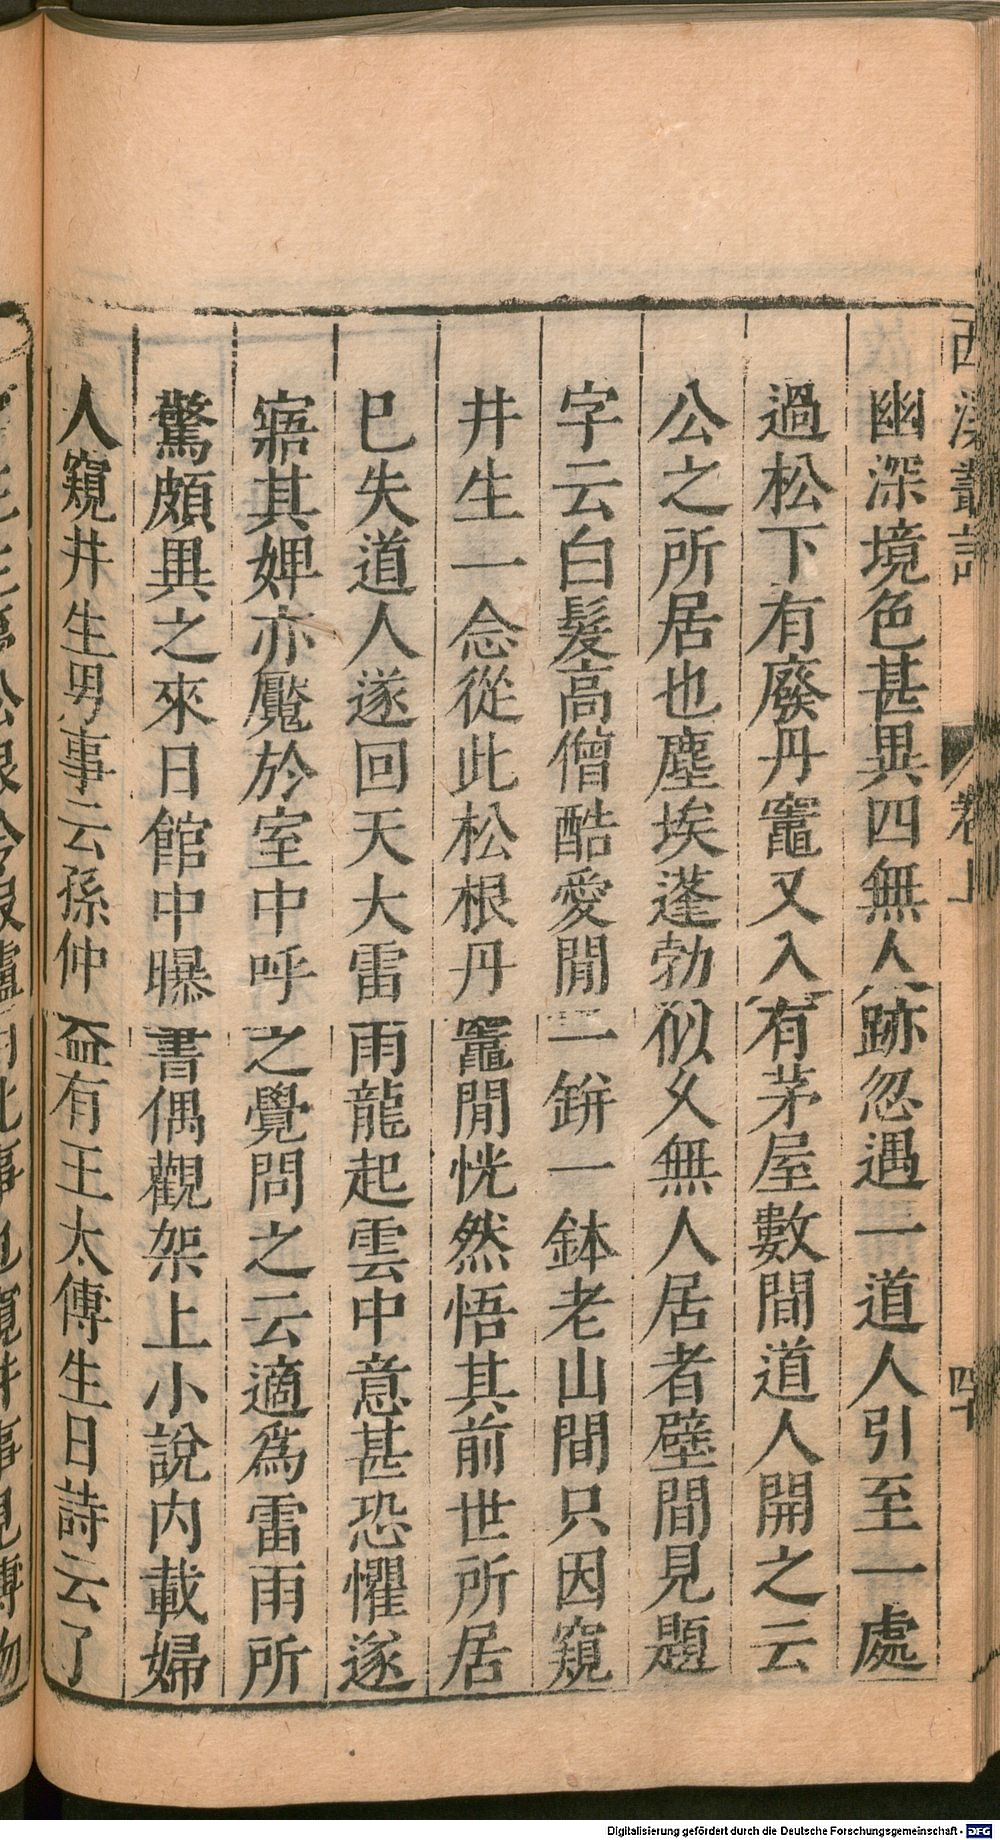 西溪叢語 卷上 四十
幽深境色甚異四無人跡忽遇一道人引至一處
過松下有廢丹竈又入有茅屋數間道人開之云
公之所居也塵埃蓬勃似久無人居者壁間見題
字云白髮高僧酷愛閒一鉼一鉢老山間只因窺
井生一念從此松根丹竈閒恍然悟其前世所居
已失道人遂回天大雷雨龍起雲中意甚恐懼遂
寤其婢亦魘於室中呼之覺問之云適爲雷雨所
驚頗異之來日館中曝書偶觀架上小說内載婦
人窺井生男事云孫仲益有王太傅生日詩云了
Digitalisierung gefördert durch die Deutsche Forschungsgemeinschaft - DFG